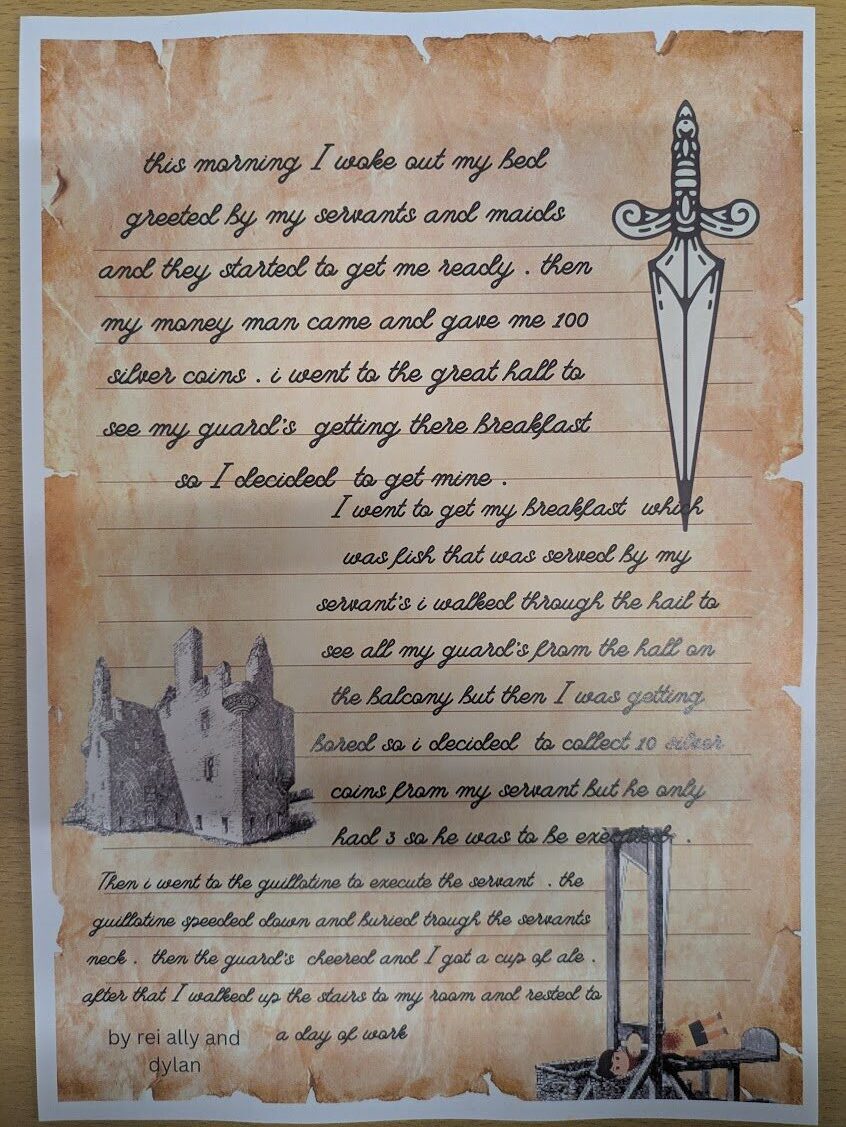 this morning I woke out my bed
greeted by my servants and maids
and they started to get me ready . then
my money man came and gave me 100
silver coins . i went to the great hall to
see my guard's getting there breakfast
so I decided to get mine .
I went to get my breakfast which
was fish that was served by my
servant's i walked through the hail to
see all my guard's from the hall on
the balcony but then I was getting
bored so i decided to collect 10 silver
coins from my servant but he only
had 3 so he was to be executed .
Then i went to the guillotine to execute the servant . the
guillotine speeded down and buried trough the servants
neck . then the guard's cheered and I got a cup of ale .
after that I walked up the stairs to my room and rested to
a day of work
by rei ally and
dylan